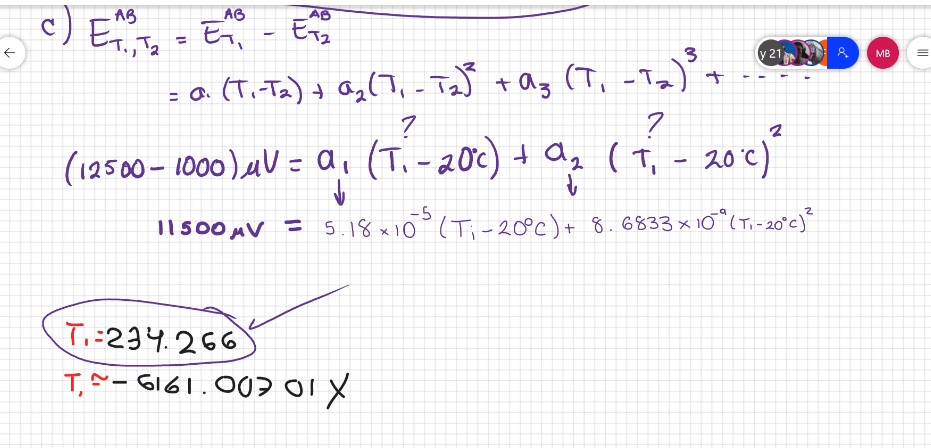 c) E^{AB}_{T₁,T₂} = E^{AB}_{T₁} - E^{AB}_{T₂}
y 21
MB
= a. (T₁-T₂) + a₂(T₁-T₂)² + a₃ (T₁-T₂)³ + .....
? ?
(12500-1000)μV = a₁ (T₁-20°C) + a₂ (T₁ - 20°C)²
11500μV = 5.18×10⁻⁵ (T₁-20°C) + 8.6833×10⁻⁹ (T₁-20°C)²
T₁=234.266
T₁≈-6161.00701 X